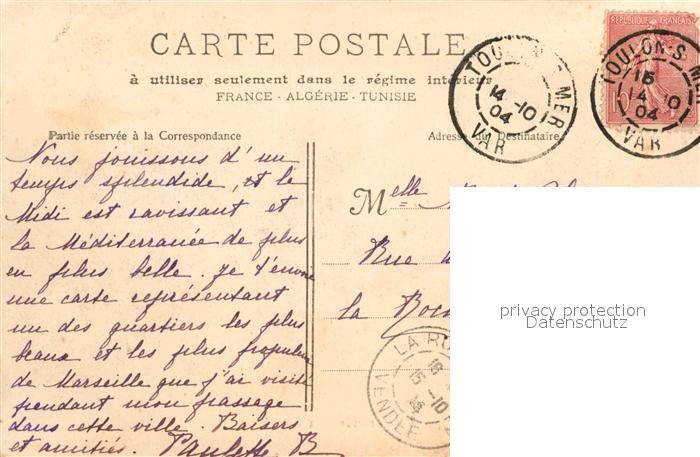 CARTE POSTALE
à utiliser seulement dans le régime intérieur
FRANCE - ALGÉRIE - TUNISIE
RÉPUBLIQUE FRANÇAISE
TOULON-S-MER
14 -10
04
VAR
TOULON-S-ME
15
14 -10
04
VAR
Partie réservée à la Correspondance
Adresse du Destinataire
Nous jouissons d'un
temps splendide, et le
Midi est ravissant et
la Méditerranée de plus
en plus belle. Je t'envoie
une carte représentant
un des quartiers les plus
beaux et les plus populeux
de Marseille que j'ai visité
pendant mon passage
dans cette ville. Baisers
et amitiés. Paulette B
Melle
Rue
la Roc
LA RO
15 -10
VENDÉE
privacy protection
Datenschutz